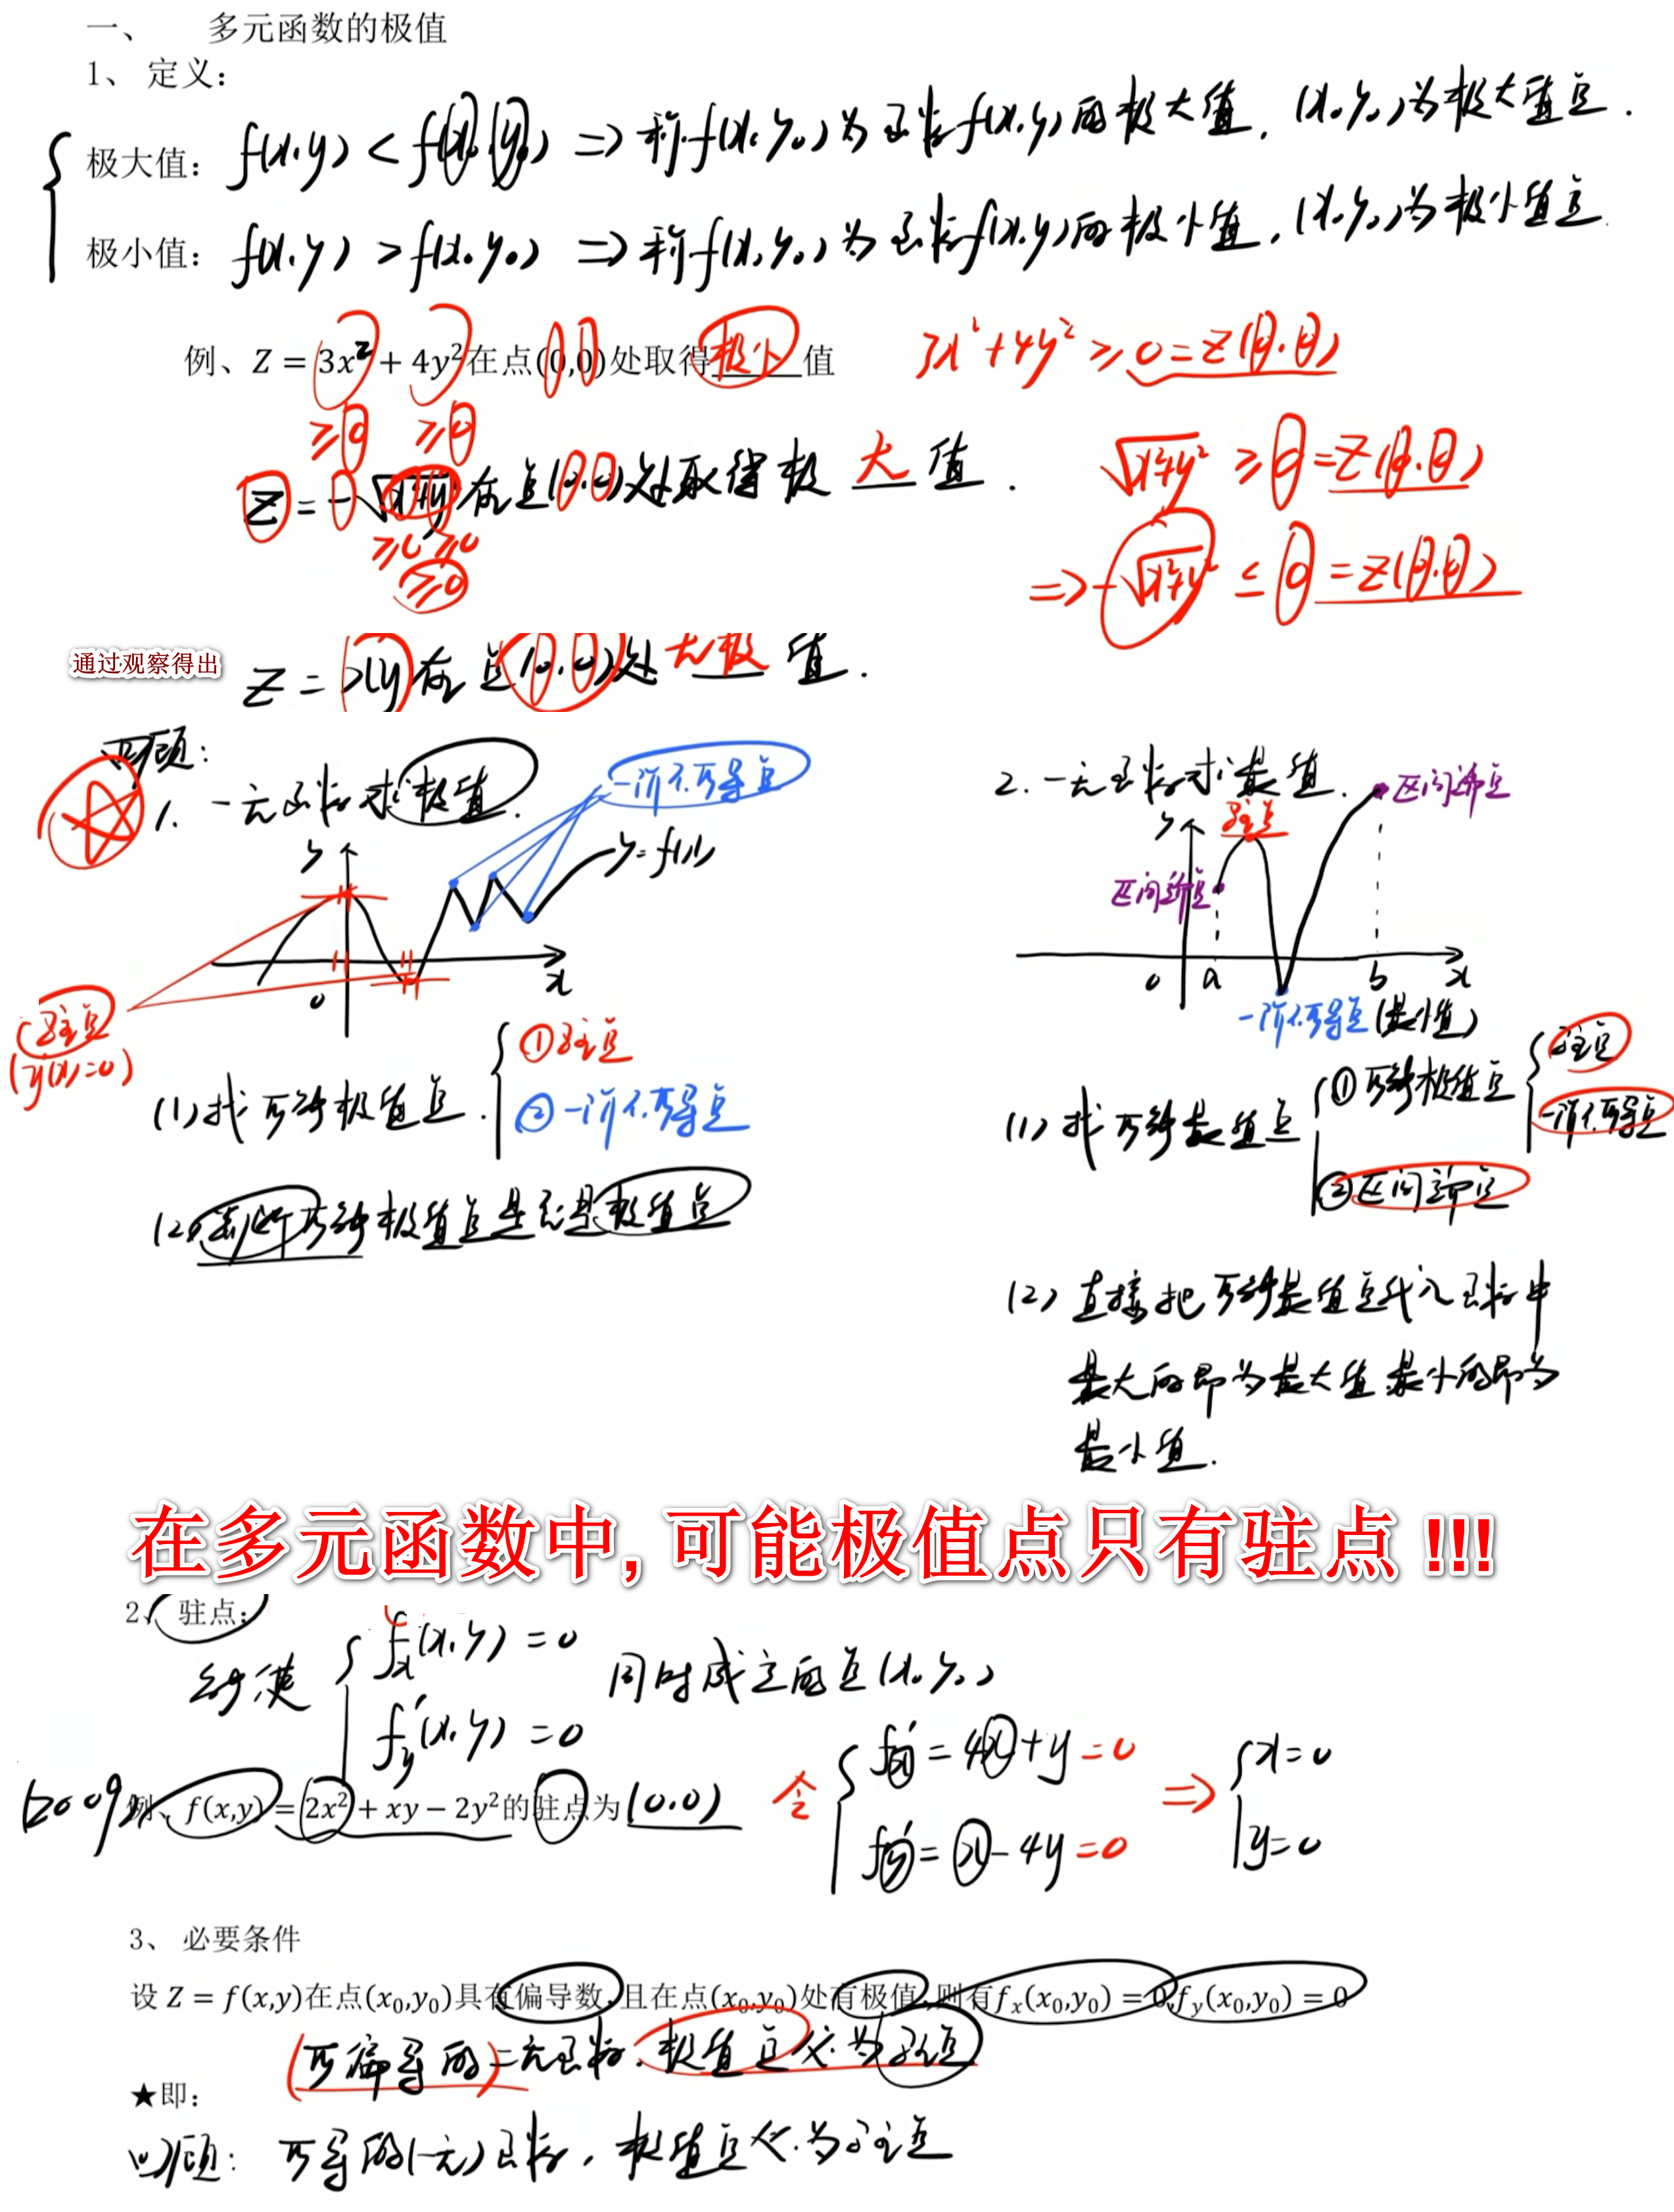 一、 多元函数的极值
1、 定义:
极大值: f(x,y) < f(x₀,y₀) ⇒ 称f(x₀,y₀)为函数f(x,y)的极大值, (x₀,y₀)为极大值点.
极小值: f(x,y) > f(x₀,y₀) ⇒ 称f(x₀,y₀)为函数f(x,y)的极小值, (x₀,y₀)为极小值点.
例、Z = 3x² + 4y²在点(0,0)处取得极小值 3x²+4y² ≥ 0 = Z(0,0)
≥0 ≥0
Z = -√x²+y² 在点(0,0)处取得极 大 值. √x²+y² ≥ 0 = Z(0,0)
≥0 ≥0
≥0
⇒ -√x²+y² ≤ 0 = Z(0,0)
通过观察得出
Z = xy在点(0,0)处无极值.
回顾:
1. 一元函数求极值.
一阶不可导点
y=f(x)
y
x
0
驻点
(y'(x)=0)
(1) 找可疑极值点. ①驻点
②一阶不可导点
(2) 判断可疑极值点是否是极值点
2. 一元函数求最值.
区间端点
y
驻点
区间端点
0 a b x
一阶不可导点(最小值)
(1) 找可疑最值点 ①可疑极值点 驻点
一阶不可导点
②区间端点
(2) 直接把可疑最值点代入函数中
最大的即为最大值,最小的即为
最小值.
在多元函数中, 可能极值点只有驻点 !!!
2、 驻点:
能使 f'x(x,y)=0 同时成立的点(x₀,y₀)
f'y(x,y)=0
(2009)例、f(x,y) = 2x² + xy − 2y²的驻点为(0,0) 令 f'x = 4x+y=0 ⇒ x=0
f'y = x-4y=0 y=0
3、 必要条件
设 Z = f(x,y)在点(x₀,y₀)具有偏导数,且在点(x₀,y₀)处有极值,则有fₓ(x₀,y₀) = 0,f_y(x₀,y₀) = 0
★即: (可偏导的)二元函数,极值点必为驻点
回顾: 可导的(一元)函数,极值点必为驻点